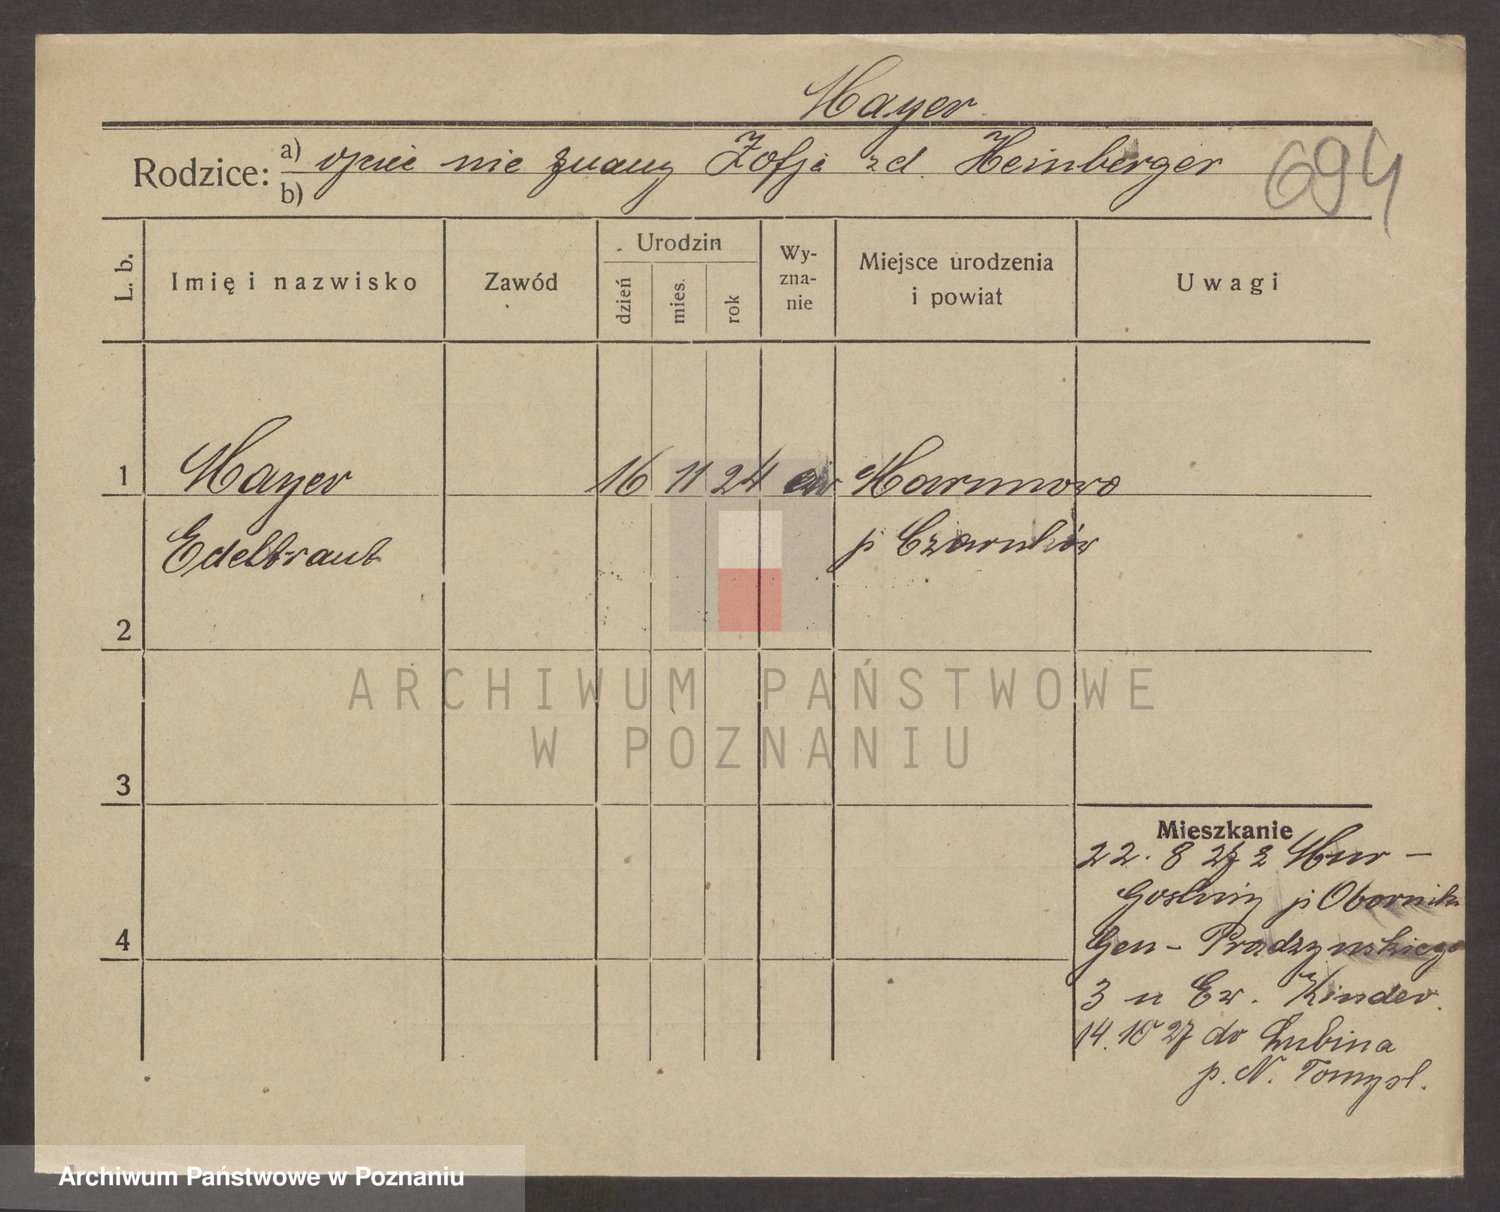 Mayer
Rodzice: a) ojciec nie znany Zofja zd. Heinberger
b)
694
L. b.
Imię i nazwisko
Zawód
Urodzin
dzień
mies.
rok
Wy-
zna-
nie
Miejsce urodzenia
i powiat
Uwagi
1 Mayer 16 11 24 ew
Edeltraut p Czarnków
2
3
4
Mieszkanie
22. 8 27 z Mur-
Gośliny p Obornik
Gen- Prądzyńskiego
3 u Ew. Kinder.
14. 10 27 do Lubina
p. N. Tomyśl.
ARCHIWUM PAŃSTWOWE
W POZNANIU
Archiwum Państwowe w Poznaniu